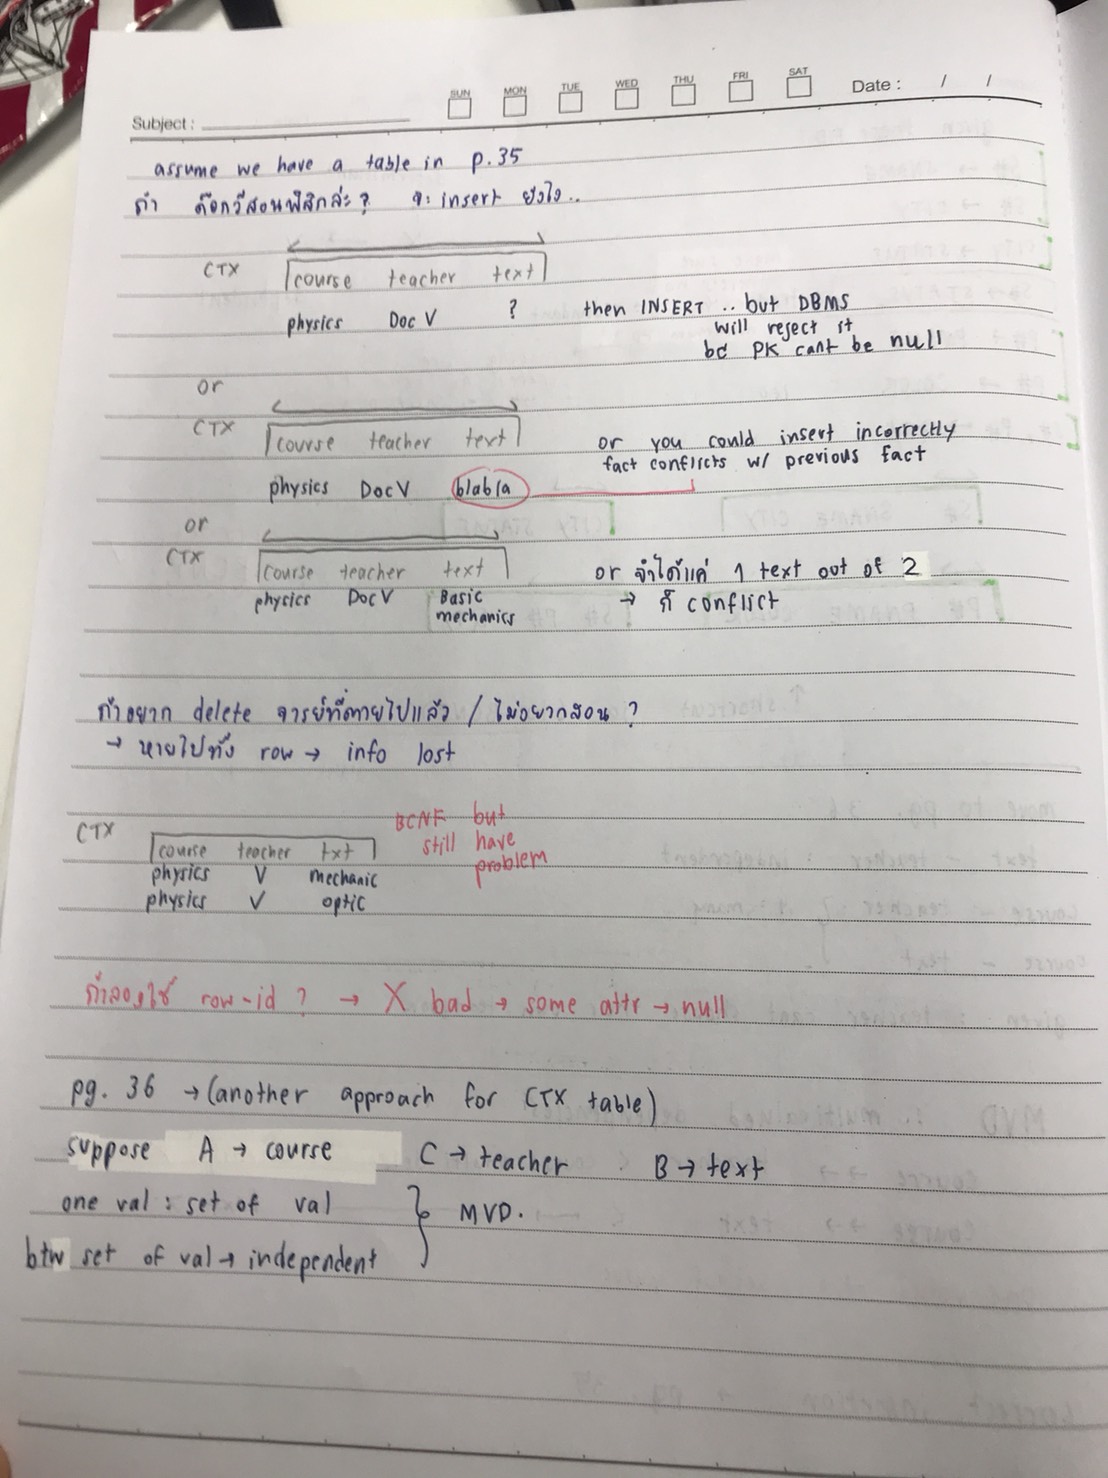 SUN MON TUE WED THU FRI SAT Date : / /
Subject :
assume we have a table in p.35
ถ้า ด๊อกวีสอนฟิสิกล่ะ? จะ insert ยังไง..
CTX course teacher text
physics Doc V ? then INSERT .. but DBMS
will reject it
bc PK cant be null
or
CTX course teacher text
or you could insert incorrectly
fact conflicts w/ previous fact
physics Doc V blabla
or
CTX course teacher text
physics Doc V Basic
mechanics
or จำได้แค่ 1 text out of 2
→ ก็ conflict
ถ้าอยาก delete จารย์ที่ตายไปแล้ว / ไม่อยากสอน ?
→ หายไปทั้ง row → info lost
CTX course teacher txt
physics V mechanic
physics V optic
BCNF but
still have
problem
ถ้าลองใช้ row-id ? → X bad → some attr → null
pg. 36 → (another approach for CTX table)
suppose A → course C → teacher B → text
one val : set of val
btw set of val → independent
} MVD.